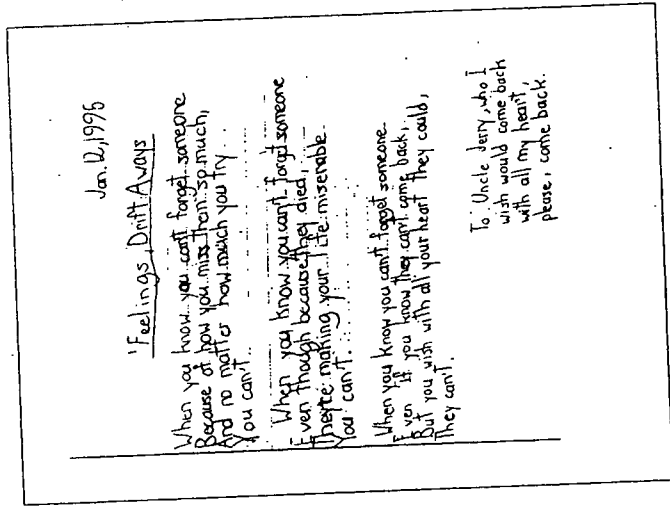 Jan. 12, 1995
'Feelings Drift Aways
When you know you can't forget someone
Because of how you miss them so much,
And no matter how much you try
You can't.
When you know you can't forget someone
Even though because they died,
They're making your life miserable
You can't.
When you know you can't forget someone
Even if you know they can't come back,
But you wish with all your heart they could,
They can't.
To: Uncle Jerry, who I
wish would come back
with all my heart,
please, come back.